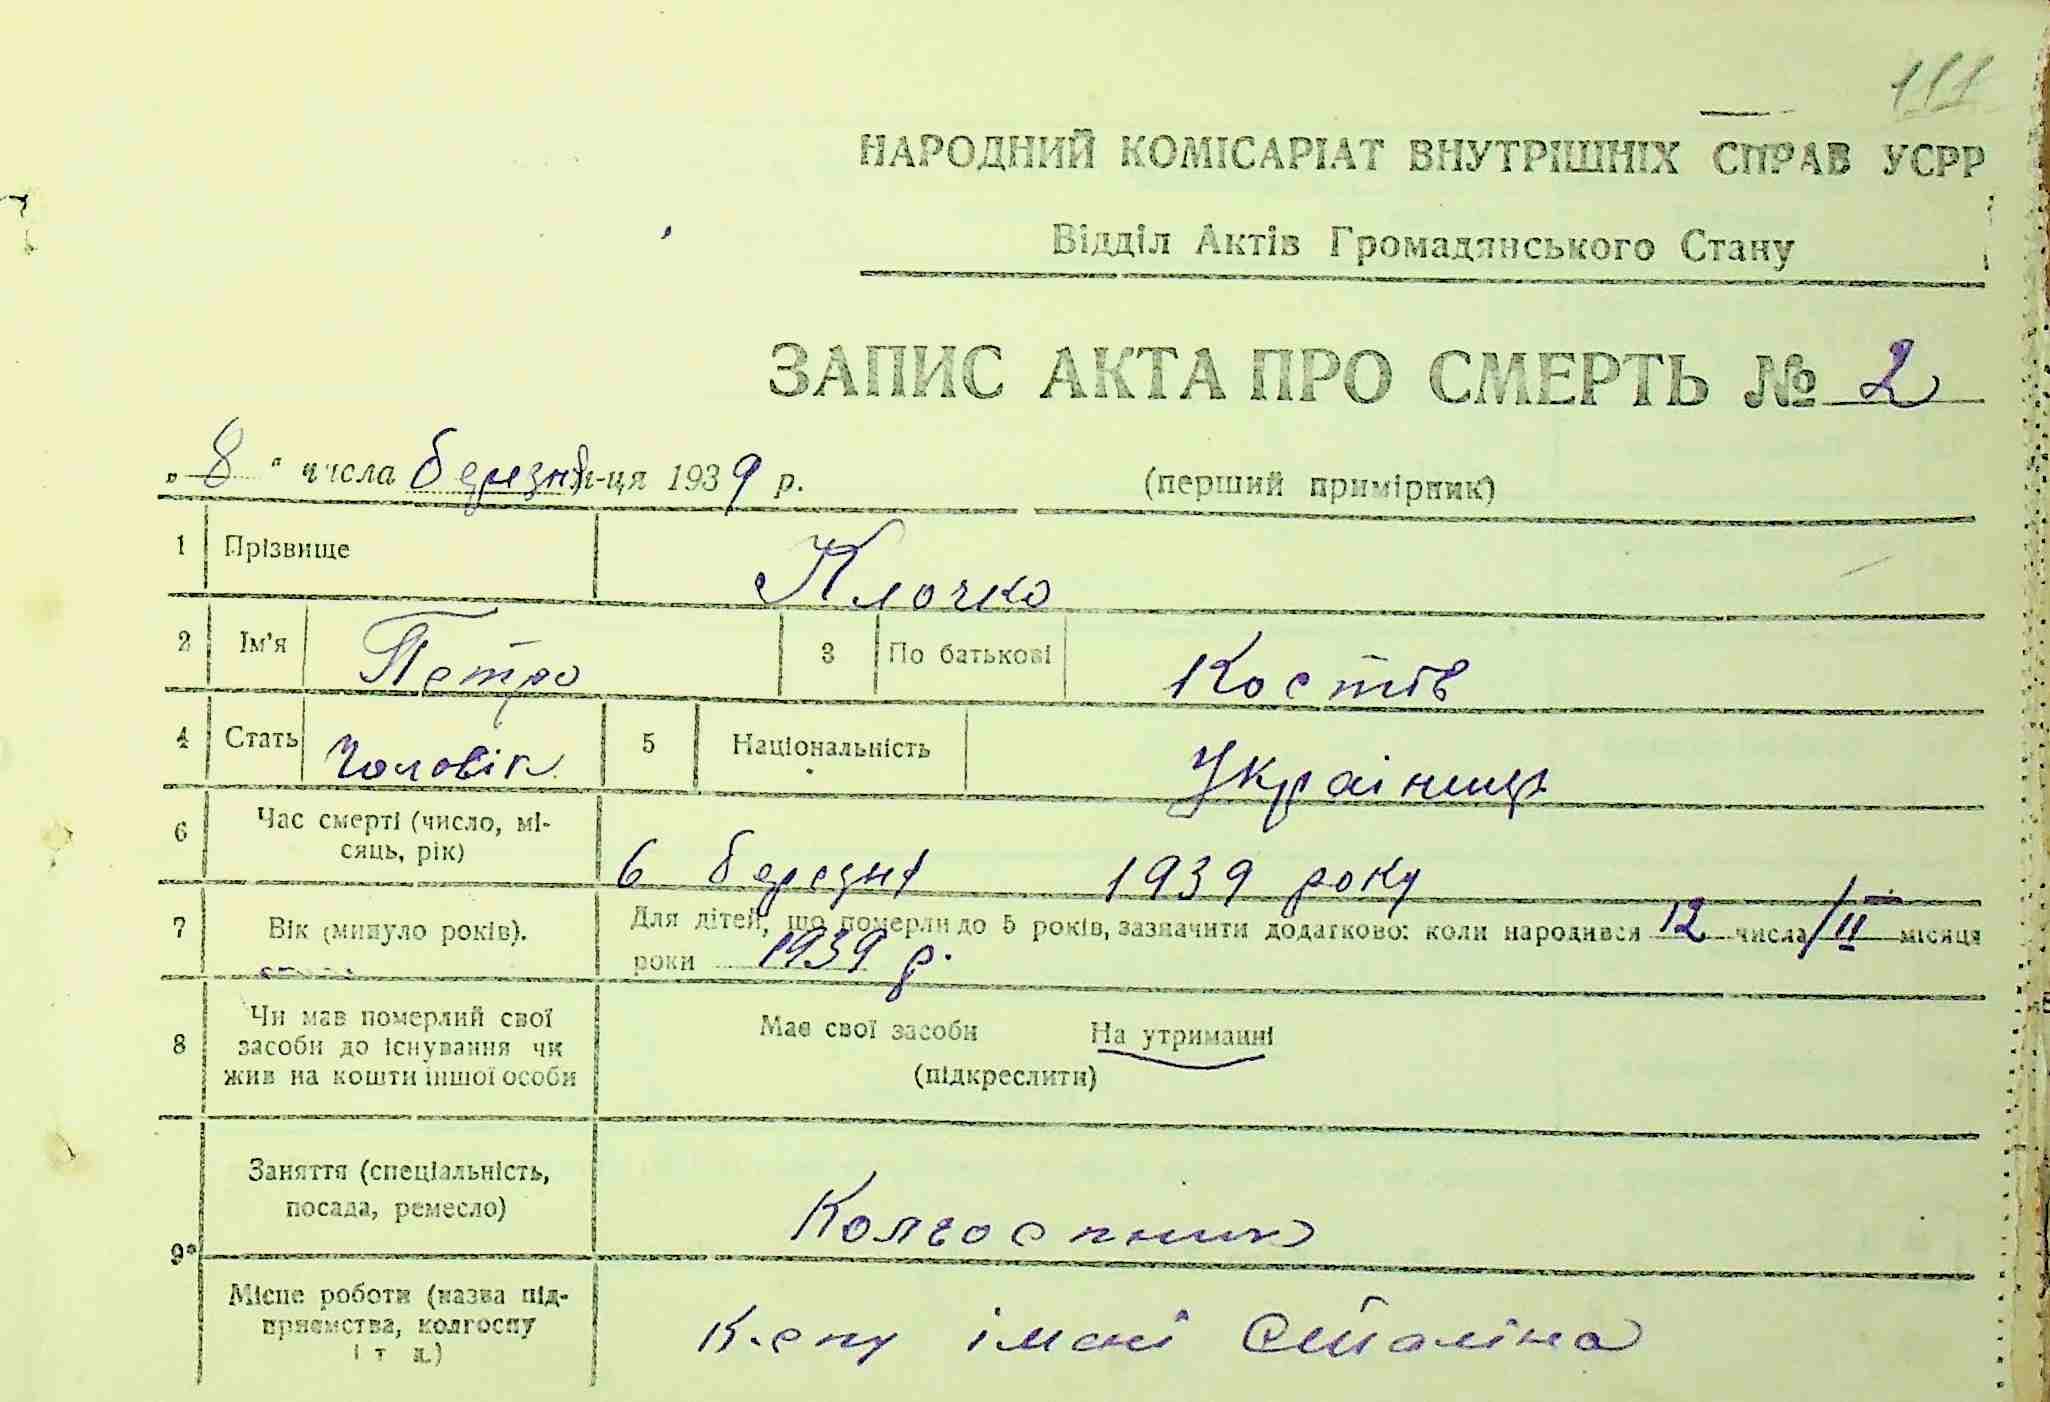 111
НАРОДНИЙ КОМІСАРІАТ ВНУТРІШНІХ СПРАВ УСРР
Відділ Актів Громадянського Стану
ЗАПИС АКТА ПРО СМЕРТЬ № 2
„ 8 “ числа березня м-ця 1939 р. (перший примірник)
1 Прізвище Клочко
2 Ім'я Петро 3 По батькові Костів
4 Стать Чоловік 5 Національність Українець
6 Час смерті (число, мі-
сяць, рік) 6 березня 1939 року
7 Вік (минуло років). Для дітей, що померли до 5 років, зазначити додатково: коли народився 12 числа / II місяця
роки 1939 р.
8 Чи мав померлий свої
засоби до існування чи
жив на кошти іншої особи
Має свої засоби На утриманні
(підкреслити)
9* Заняття (спеціальність,
посада, ремесло) Колгоспник
Місце роботи (назва під-
приємства, колгоспу
і т д.) К-спу імені Сталіна